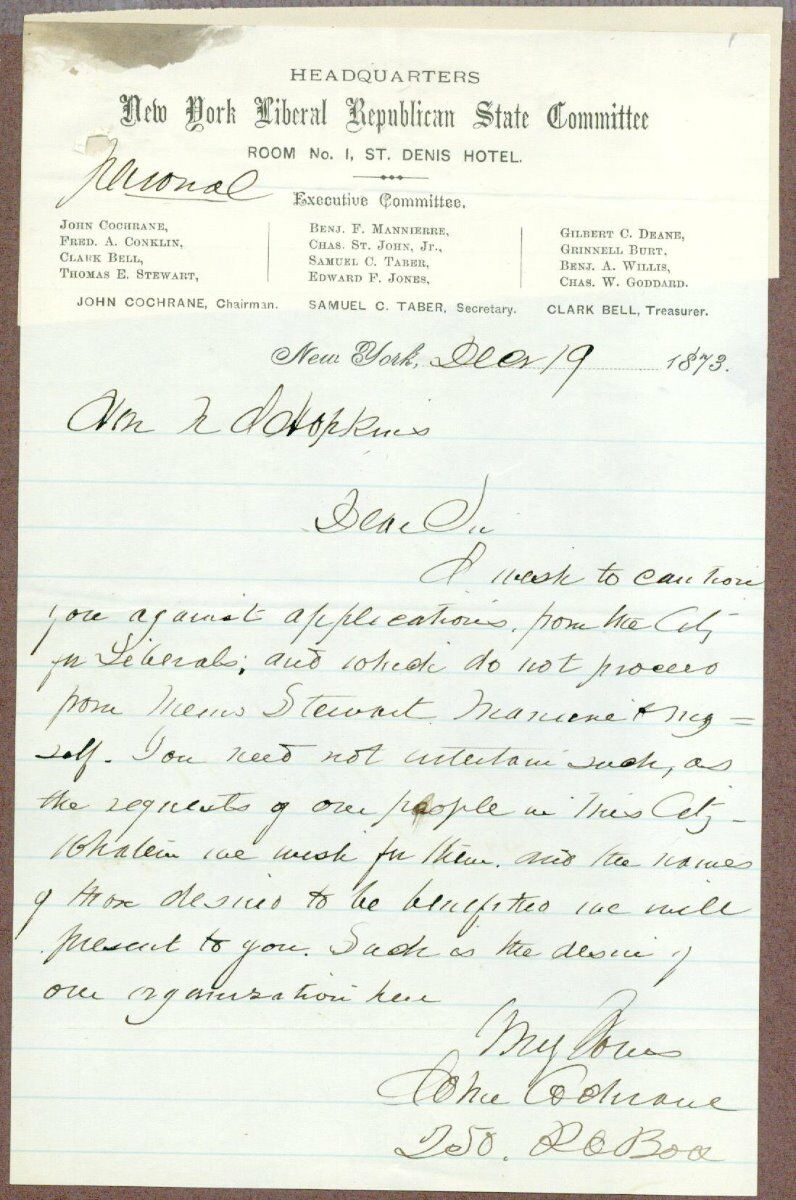 HEADQUARTERS
New York Liberal Republican State Committee
ROOM No. 1, ST. DENIS HOTEL.
Personal
Executive Committee.
JOHN COCHRANE,
FRED. A. CONKLIN,
CLARK BELL,
THOMAS E. STEWART,
BENJ. F. MANNIERRE,
CHAS. ST. JOHN, JR.,
SAMUEL C. TABER,
EDWARD F. JONES,
GILBERT C. DEANE,
GRINNELL BURT,
BENJ. A. WILLIS,
CHAS. W. GODDARD.
JOHN COCHRANE, Chairman. SAMUEL C. TABER, Secretary. CLARK BELL, Treasurer.
New York, Decr 19 1873.
Hon Hopkins
Dear Sir
I wish to caution
you against applications, from the City
for Liberals; and which do not proceed
from Messrs Stewart, Manierre & my=
self. You need not entertain such, as
the requests of our people in this City_
Whatever we wish for them, and the names
of those desired to be benefitted we will
present to you. Such is the desire of
our organization here
Yours
John Cochrane
250. P O Box